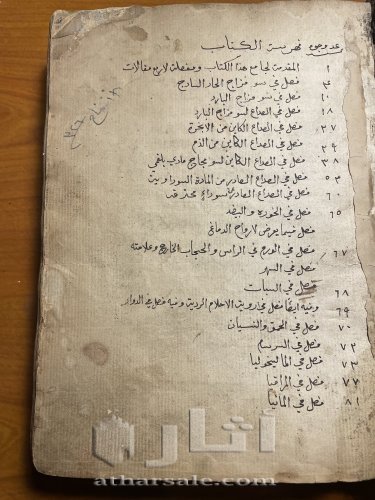 عدد وجوه فهرست الكتاب
١ المقدمة لجامع هذا الكتاب ومفصلات لاربع مقالات
٣ فصل في سو مزاج الحار الساذج
١٠ فصل في سو مزاج البارد
١٨ فصل في الصداع لسو مزاج البارد
٢٧ فصل في الصداع الكاين من الابخرة
٢٩ فصل في الصداع الكاين من الدم
٣٨ فصل في الصداع الكاين لسو مزاج مادي بلغمي
٥٣ فصل في الصداع الصادر من المادة السوداويه
٦٠ فصل في الصداع الصادر لسوداء محترقه
٦٥ فصل في الخوذه والبيضه
فصل فيما يعرض لارواح الدماغ
٦٧ فصل في الورم في الراس والحجاب الخارج وعلامته
فصل في السهر
٦٨ فصل في السبات
٦٩ وفيه ايضا فصل في رويت الاحلام الرديه وفيه فصل في الدوار
٧٠ فصل في الحمق والنسيان
٧٢ فصل في السرسام
٧٣ فصل في الماليخوليا
٧٧ فصل في المراقيا
٨١ فصل في المانيا
آثار
atharsale.com